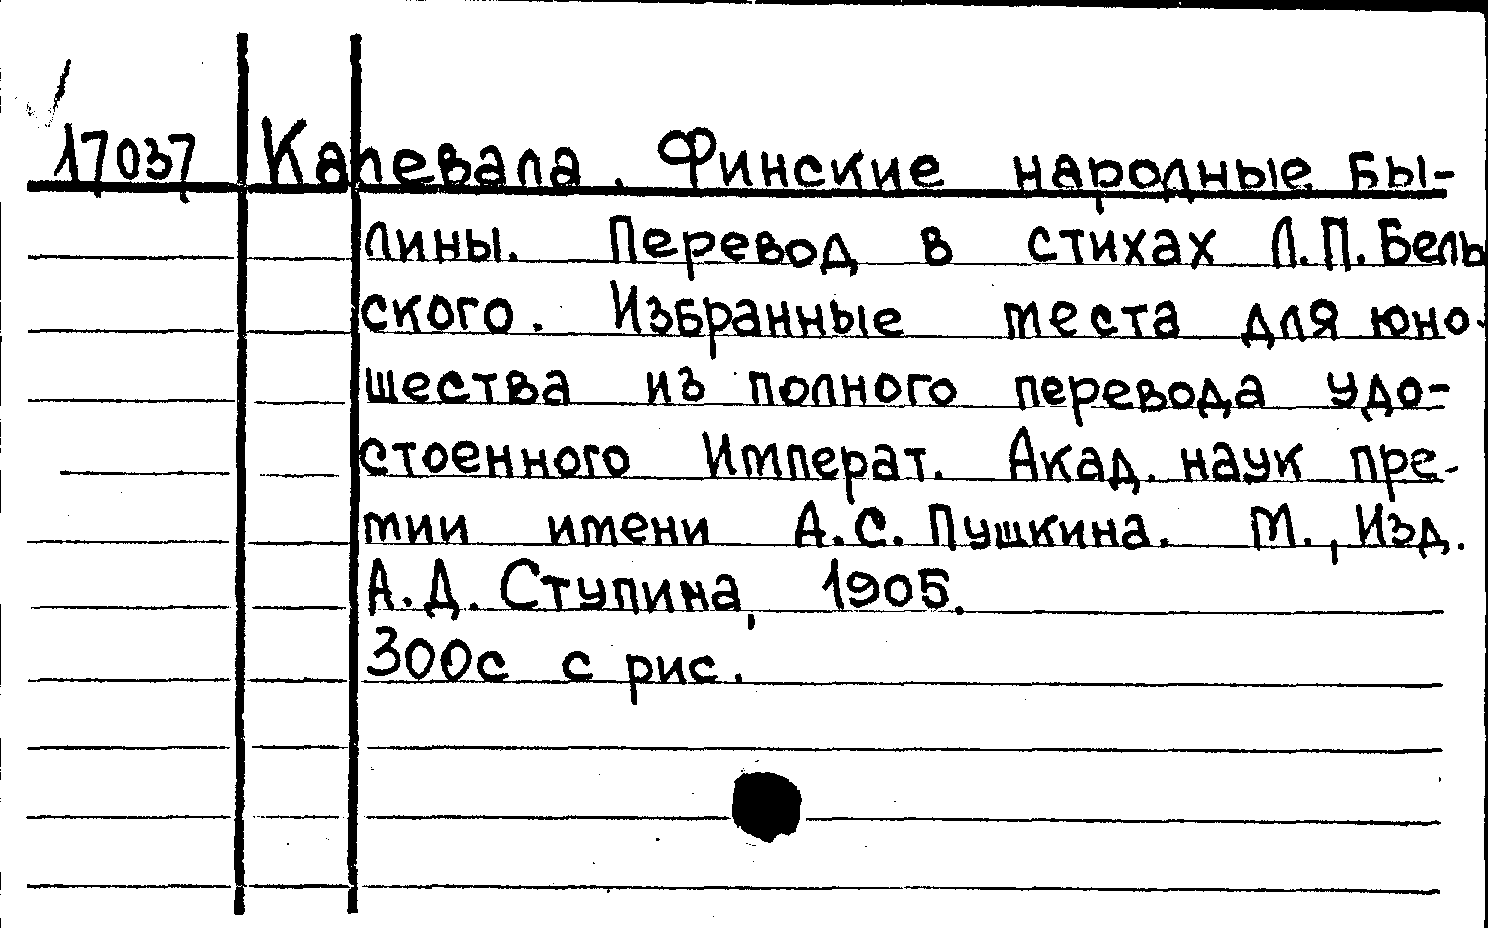 17037 Калевала. Финские народные бы-
лины. Перевод в стихах Л.П.Бель
ского. Избранные места для юно-
шества из полного перевода удо-
стоенного Императ. Акад. наук пре-
мии имени А.С. Пушкина. М., Изд.
А.Д. Ступина, 1905.
300с с рис.